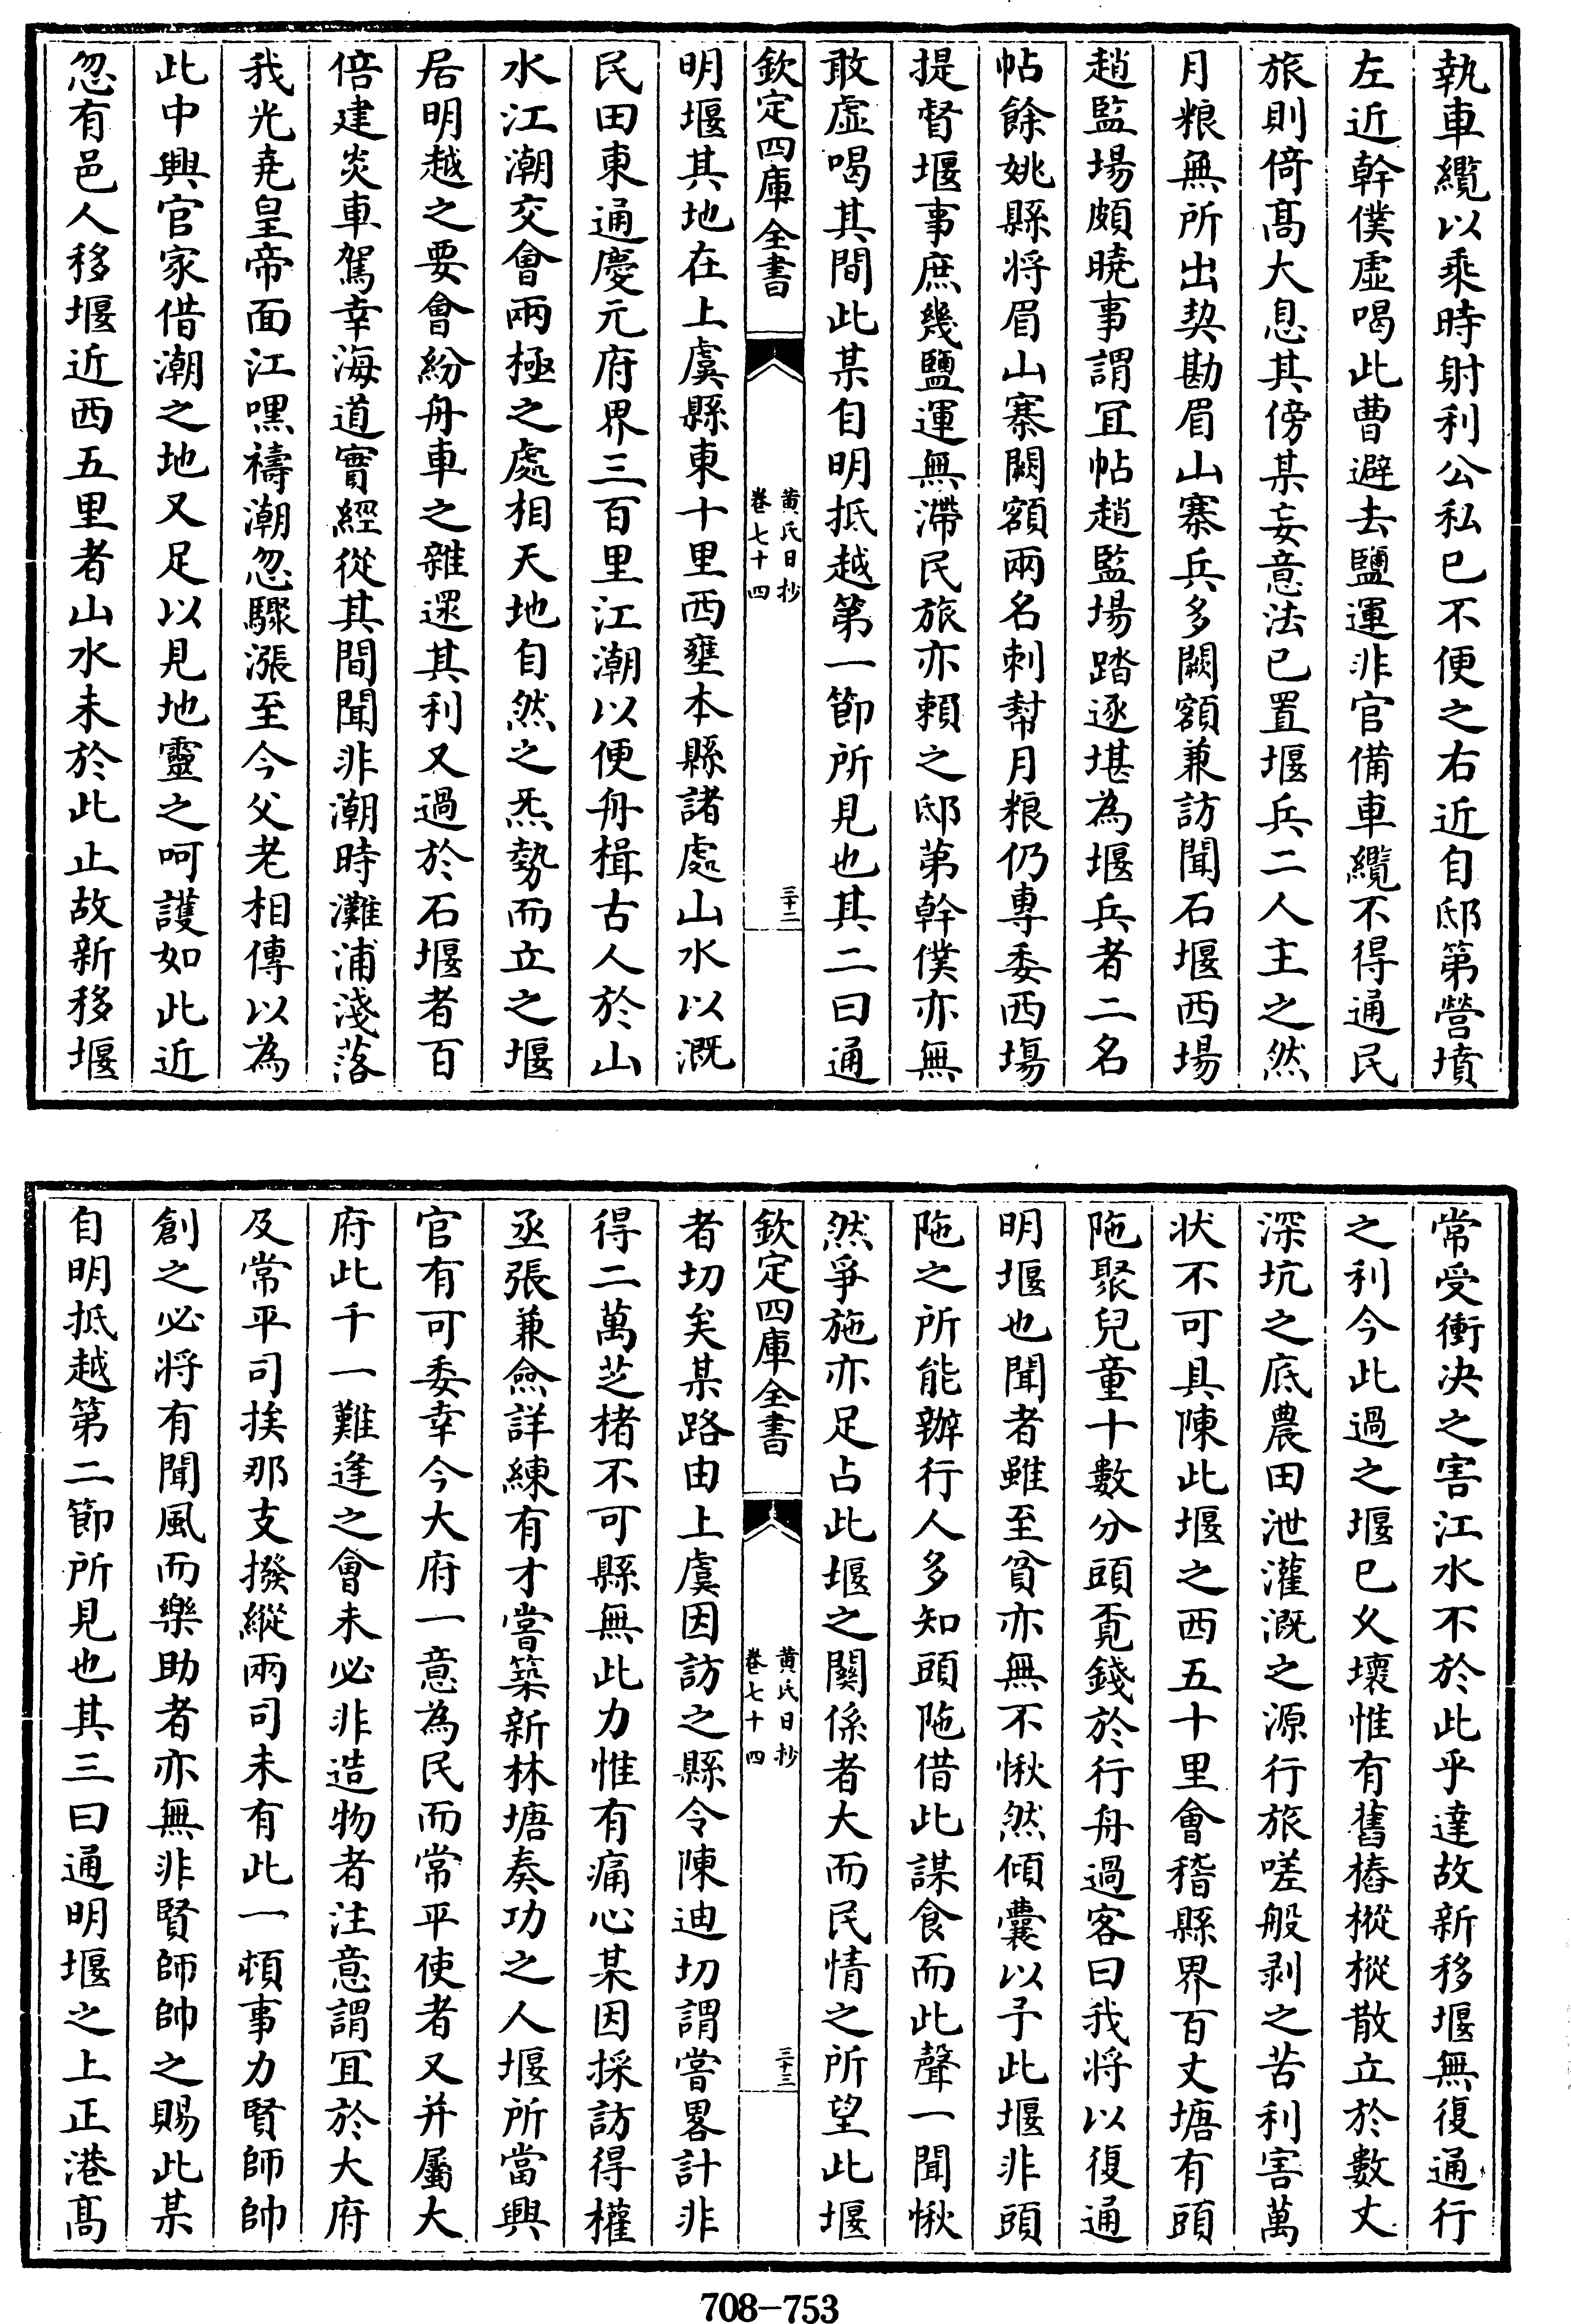 執車纜以乘時射利公私已不便之右近自邸第營墳
左近幹僕虛喝此曹避去鹽運非官備車纜不得通民
旅則倚髙大息其傍某妄意法已置堰兵二人主之然
月粮無所出契勘眉山寨兵多闕額兼訪聞石堰西場
趙監場頗曉事謂宜帖趙監場踏逐堪為堰兵者二名
帖餘姚縣將眉山寨闕額兩名刺幇月粮仍專委西場
提督堰事庶幾鹽運無滯民旅亦頼之邸第幹僕亦無
敢虛喝其間此某自明抵越第一節所見也其二曰通
欽定四庫全書
黄氏日抄
卷七十四
三十二
明堰其地在上虞縣東十里西壅本縣諸處山水以溉
民田東通慶元府界三百里江潮以便舟楫古人於山
水江潮交會兩極之處相天地自然之炁勢而立之堰
居明越之要會紛舟車之雜遝其利又過於石堰者百
倍建炎車駕幸海道實經從其間聞非潮時灘浦淺落
我光堯皇帝面江嘿禱潮忽驟漲至今父老相傳以為
此中興官家借潮之地又足以見地靈之呵護如此近
忽有邑人移堰近西五里者山水未於此止故新移堰
常受衝决之害江水不於此乎達故新移堰無復通行
之利今此過之堰已乆壞惟有舊樁樅樅散立於數丈
深坑之底農田泄灌溉之源行旅嗟般剥之苦利害萬
状不可具陳此堰之西五十里會稽縣界百丈塘有頭
陁聚兒童十數分頭覔錢於行舟過客曰我將以復通
明堰也聞者雖至貧亦無不愀然傾囊以予此堰非頭
陁之所能辦行人多知頭陁借此謀食而此聲一聞愀
然爭施亦足占此堰之關係者大而民情之所望此堰
欽定四庫全書
黄氏日抄
卷七十四
三十三
者切矣某路由上虞因訪之縣令陳迪切謂嘗畧計非
得二萬芝楮不可縣無此力惟有痛心某因採訪得權
丞張兼僉詳練有才嘗築新林塘奏功之人堰所當興
官有可委幸今大府一意為民而常平使者又并屬大
府此千一難逢之會未必非造物者注意謂宜於大府
及常平司挨那支撥縱兩司未有此一頓事力賢師帥
創之必將有聞風而樂助者亦無非賢師帥之賜此某
自明抵越第二節所見也其三曰通明堰之上正港髙
708-753